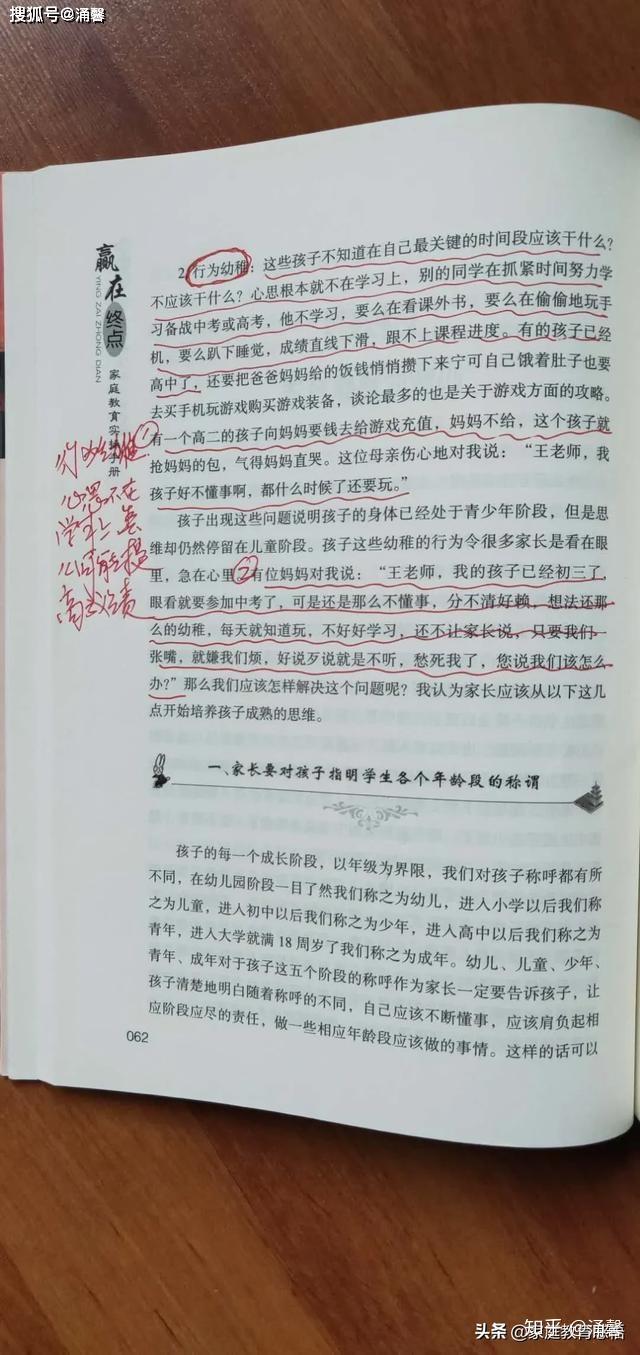 搜狐号@涌馨
赢在终点
YING ZAI ZHONG DIAN
家庭教育实
册
2. 行为幼稚：这些孩子不知道在自己最关键的时间段应该干什么？
不应该干什么？心思根本就不在学习上，别的同学在抓紧时间努力学
习备战中考或高考，他不学习，要么在看课外书，要么在偷偷地玩手
机，要么趴下睡觉，成绩直线下滑，跟不上课程进度。有的孩子已经
高中了，还要把爸爸妈妈给的饭钱悄悄攒下来宁可自己饿着肚子也要
去买手机玩游戏购买游戏装备，谈论最多的也是关于游戏方面的攻略。
有一个高二的孩子向妈妈要钱去给游戏充值，妈妈不给，这个孩子就
抢妈妈的包，气得妈妈直哭。这位母亲伤心地对我说：“王老师，我
孩子好不懂事啊，都什么时候了还要玩。”
孩子出现这些问题说明孩子的身体已经处于青少年阶段，但是思
维却仍然停留在儿童阶段。孩子这些幼稚的行为令很多家长是看在眼
里，急在心里②有位妈妈对我说：“王老师，我的孩子已经初三了，
眼看就要参加中考了，可是还是那么不懂事，分不清好赖，想法还那
么的幼稚，每天就知道玩，不好好学习，还不让家长说，只要我们一
张嘴，就嫌我们烦，好说歹说就是不听，愁死我了，您说我们该怎么
办？”那么我们应该怎样解决这个问题呢？我认为家长应该从以下这几
点开始培养孩子成熟的思维。
一、家长要对孩子指明学生各个年龄段的称谓
孩子的每一个成长阶段，以年级为界限，我们对孩子称呼都有所
不同，在幼儿园阶段一目了然我们称之为幼儿，进入小学以后我们称
之为儿童，进入初中以后我们称之为少年，进入高中以后我们称之为
青年，进入大学就满 18 周岁了我们称之为成年。幼儿、儿童、少年、
青年、成年对于孩子这五个阶段的称呼作为家长一定要告诉孩子，让
孩子清楚地明白随着称呼的不同，自己应该不断懂事，应该肩负起相
应阶段应尽的责任，做一些相应年龄段应该做的事情。这样的话可以
062
①
行为幼稚
心思不在
学习上怎
么可能提
高成绩
知乎 @涌馨
头条 @家庭教育